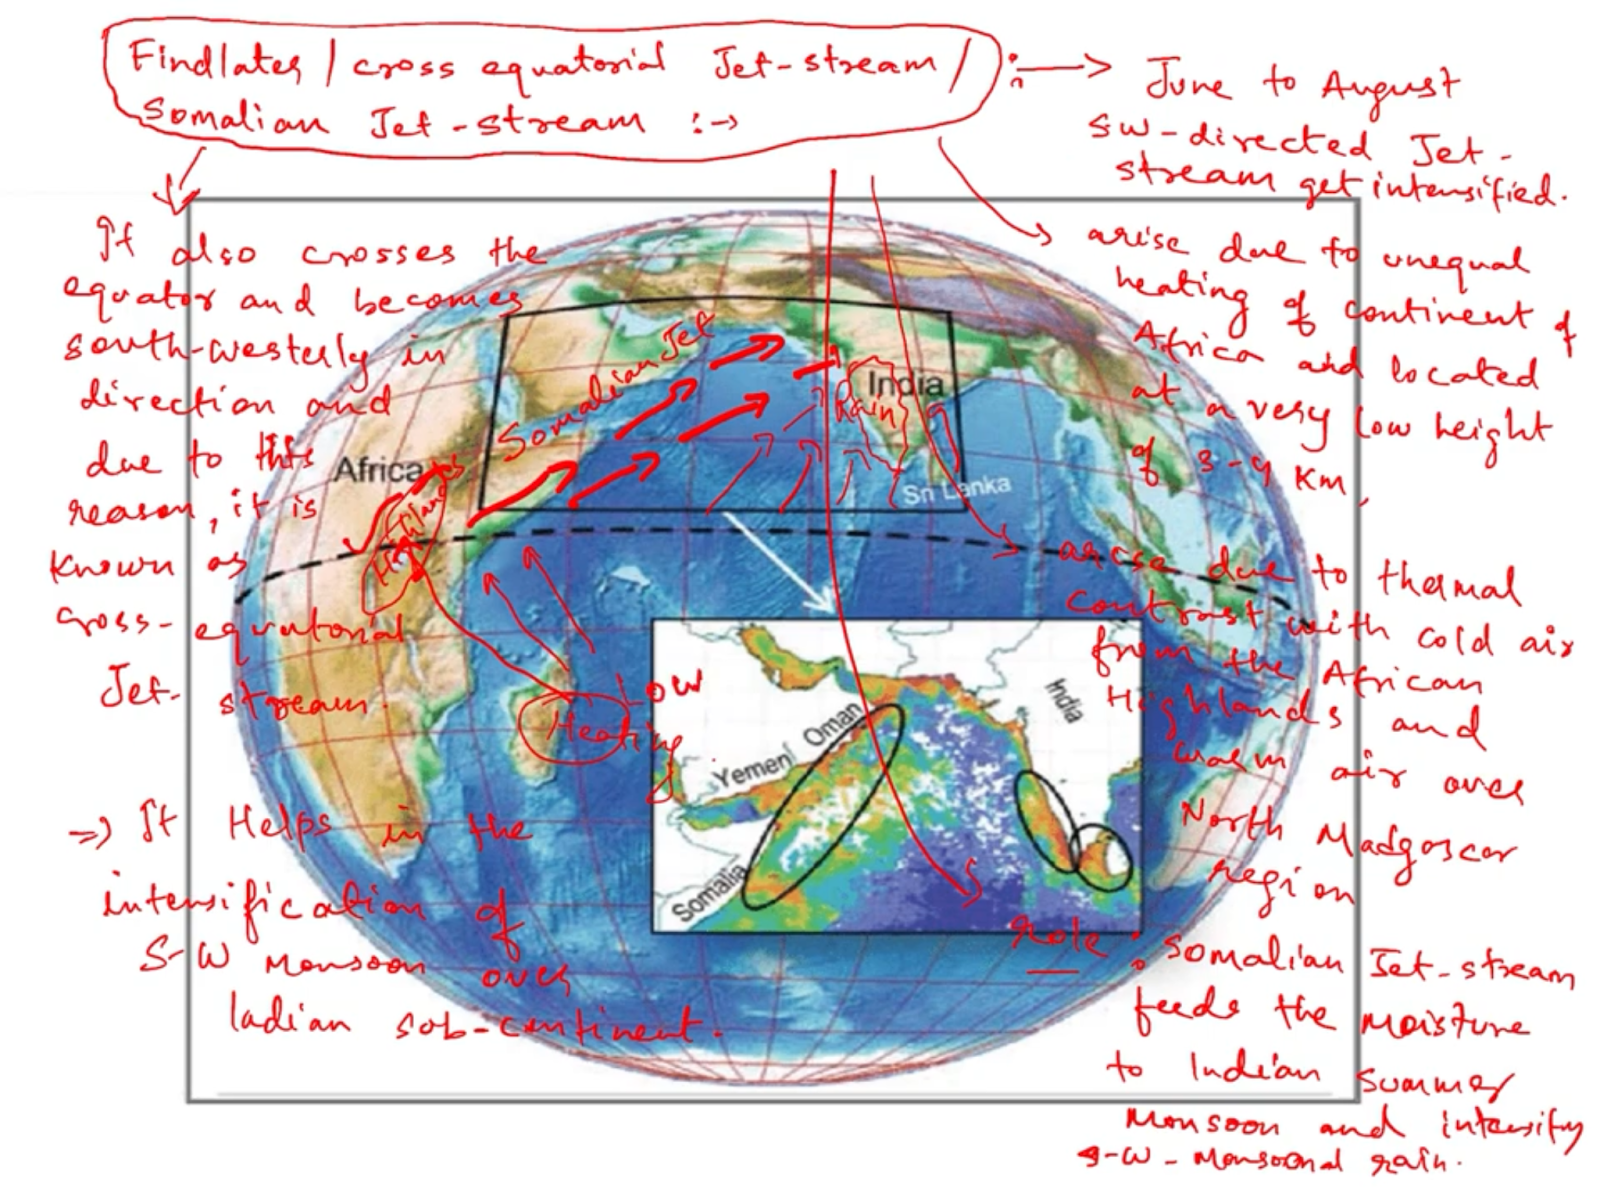 Findlater / cross equatorial Jet-stream /
Somalian Jet-stream :→
:→ June to August
SW-directed Jet-
stream get intensified.
It also crosses the
equator and becomes
south-westerly in
direction and
due to this
reason, it is
known as
cross-equatorial
Jet-stream.
⇒ It Helps in the
intensification of
S-W Monsoon over
Indian sub-continent.
arise due to unequal
heating of continent of
Africa and located
at a very low height
of 3-4 Km,
arise due to thermal
contrast with cold air
from the African
Highlands and
warm air over
North Madgascar
region
role : Somalian Jet-stream
feeds the moisture
to Indian summer
Monsoon and intensify
S-W-Monsoonal rain.
Somalian Jet
Africa
Highlands
India
Rain
Sri Lanka
Low
Heating
Oman
Yemen
Somalia
India